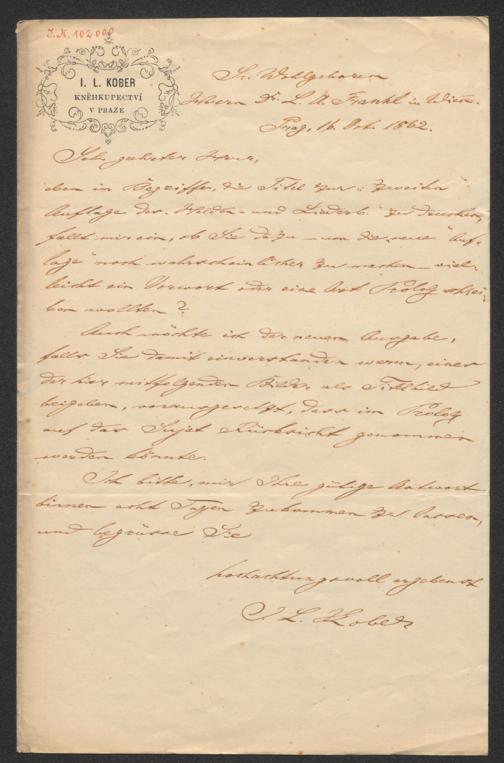 I.N. 102000
I. L. KOBER
KNĚHKUPECTVÍ
V PRAZE
Sr. Wohlgeboren
Herrn Dr. L. A. Frankl in Wien.
Prag, 16. Okt. 1862.
Sehr geehrter Herr,
eben im Begriffe, die Titel zur "zweiten
Auflage des Helden- und Liederb." zu drucken,
fällt mir ein, ob Sie dazu – um die neue "Auf-
lage" noch wahrscheinlicher zu machen – viel-
leicht ein Vorwort oder eine Art Prolog schrei-
ben wollten?
Auch möchte ich der neuen Ausgabe,
falls Sie damit einverstanden wären, eines
der hier mitfolgenden Bilder als Titelbild
beigeben, vorausgesetzt, dass im Prolog
auf das Sujet Rücksicht genommen
werden könnte.
Ich bitte, mir Ihre gütige Antwort
binnen acht Tagen zukommen zu lassen,
und begrüsse Sie
hochachtungsvoll ergebenst
I L. Kober